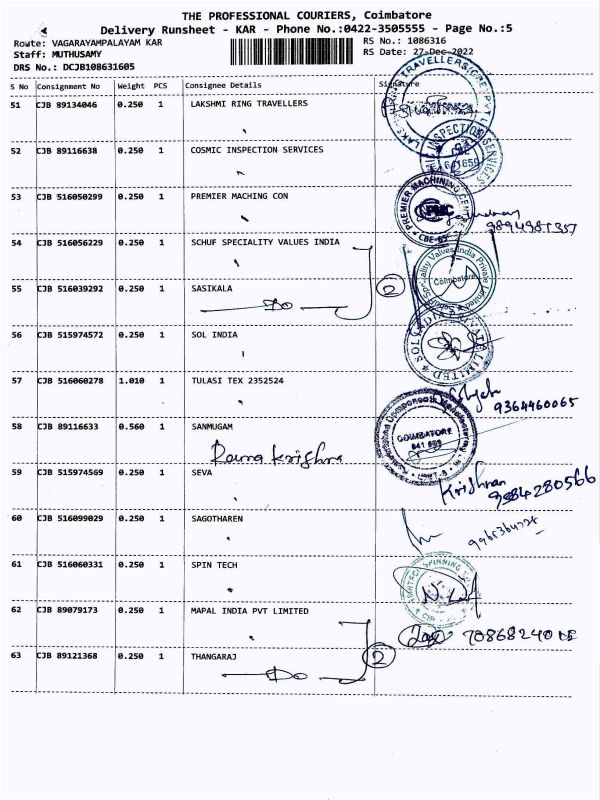 THE PROFESSIONAL COURIERS, Coimbatore
Delivery Runsheet - KAR - Phone No.:0422-3505555 - Page No.:5
Route: VAGARAYAMPALAYAM KAR
RS No.: 1086316
Staff: MUTHUSAMY
RS Date: 27-Dec-2022
DRS No.: DCJB108631605
S No Consignment No Weight PCS Consignee Details Signature
51 CJB 89134046 0.250 1 LAKSHMI RING TRAVELLERS
52 CJB 89116638 0.250 1 COSMIC INSPECTION SERVICES
53 CJB 516050299 0.250 1 PREMIER MACHING CON
PREMIER MACHINING CENTRE
PMC
CBE-65
9894981357
54 CJB 516056229 0.250 1 SCHUF SPECIALITY VALUES INDIA
Schuf Speciality Valves India Private Limited
Coimbatore
55 CJB 516039292 0.250 1 SASIKALA
Do
2
56 CJB 515974572 0.250 1 SOL INDIA
SOL INDIA PRIVATE LIMITED
57 CJB 516060278 1.010 1 TULASI TEX 2352524
9364460065
58 CJB 89116633 0.560 1 SANMUGAM
COIMBATORE
641 659
Rama Krishna
59 CJB 515974569 0.250 1 SEVA
Kridhran
9984280566
60 CJB 516099029 0.250 1 SAGOTHAREN
61 CJB 516060331 0.250 1 SPIN TECH
62 CJB 89079173 0.250 1 MAPAL INDIA PVT LIMITED
63 CJB 89121368 0.250 1 THANGARAJ
2
Do